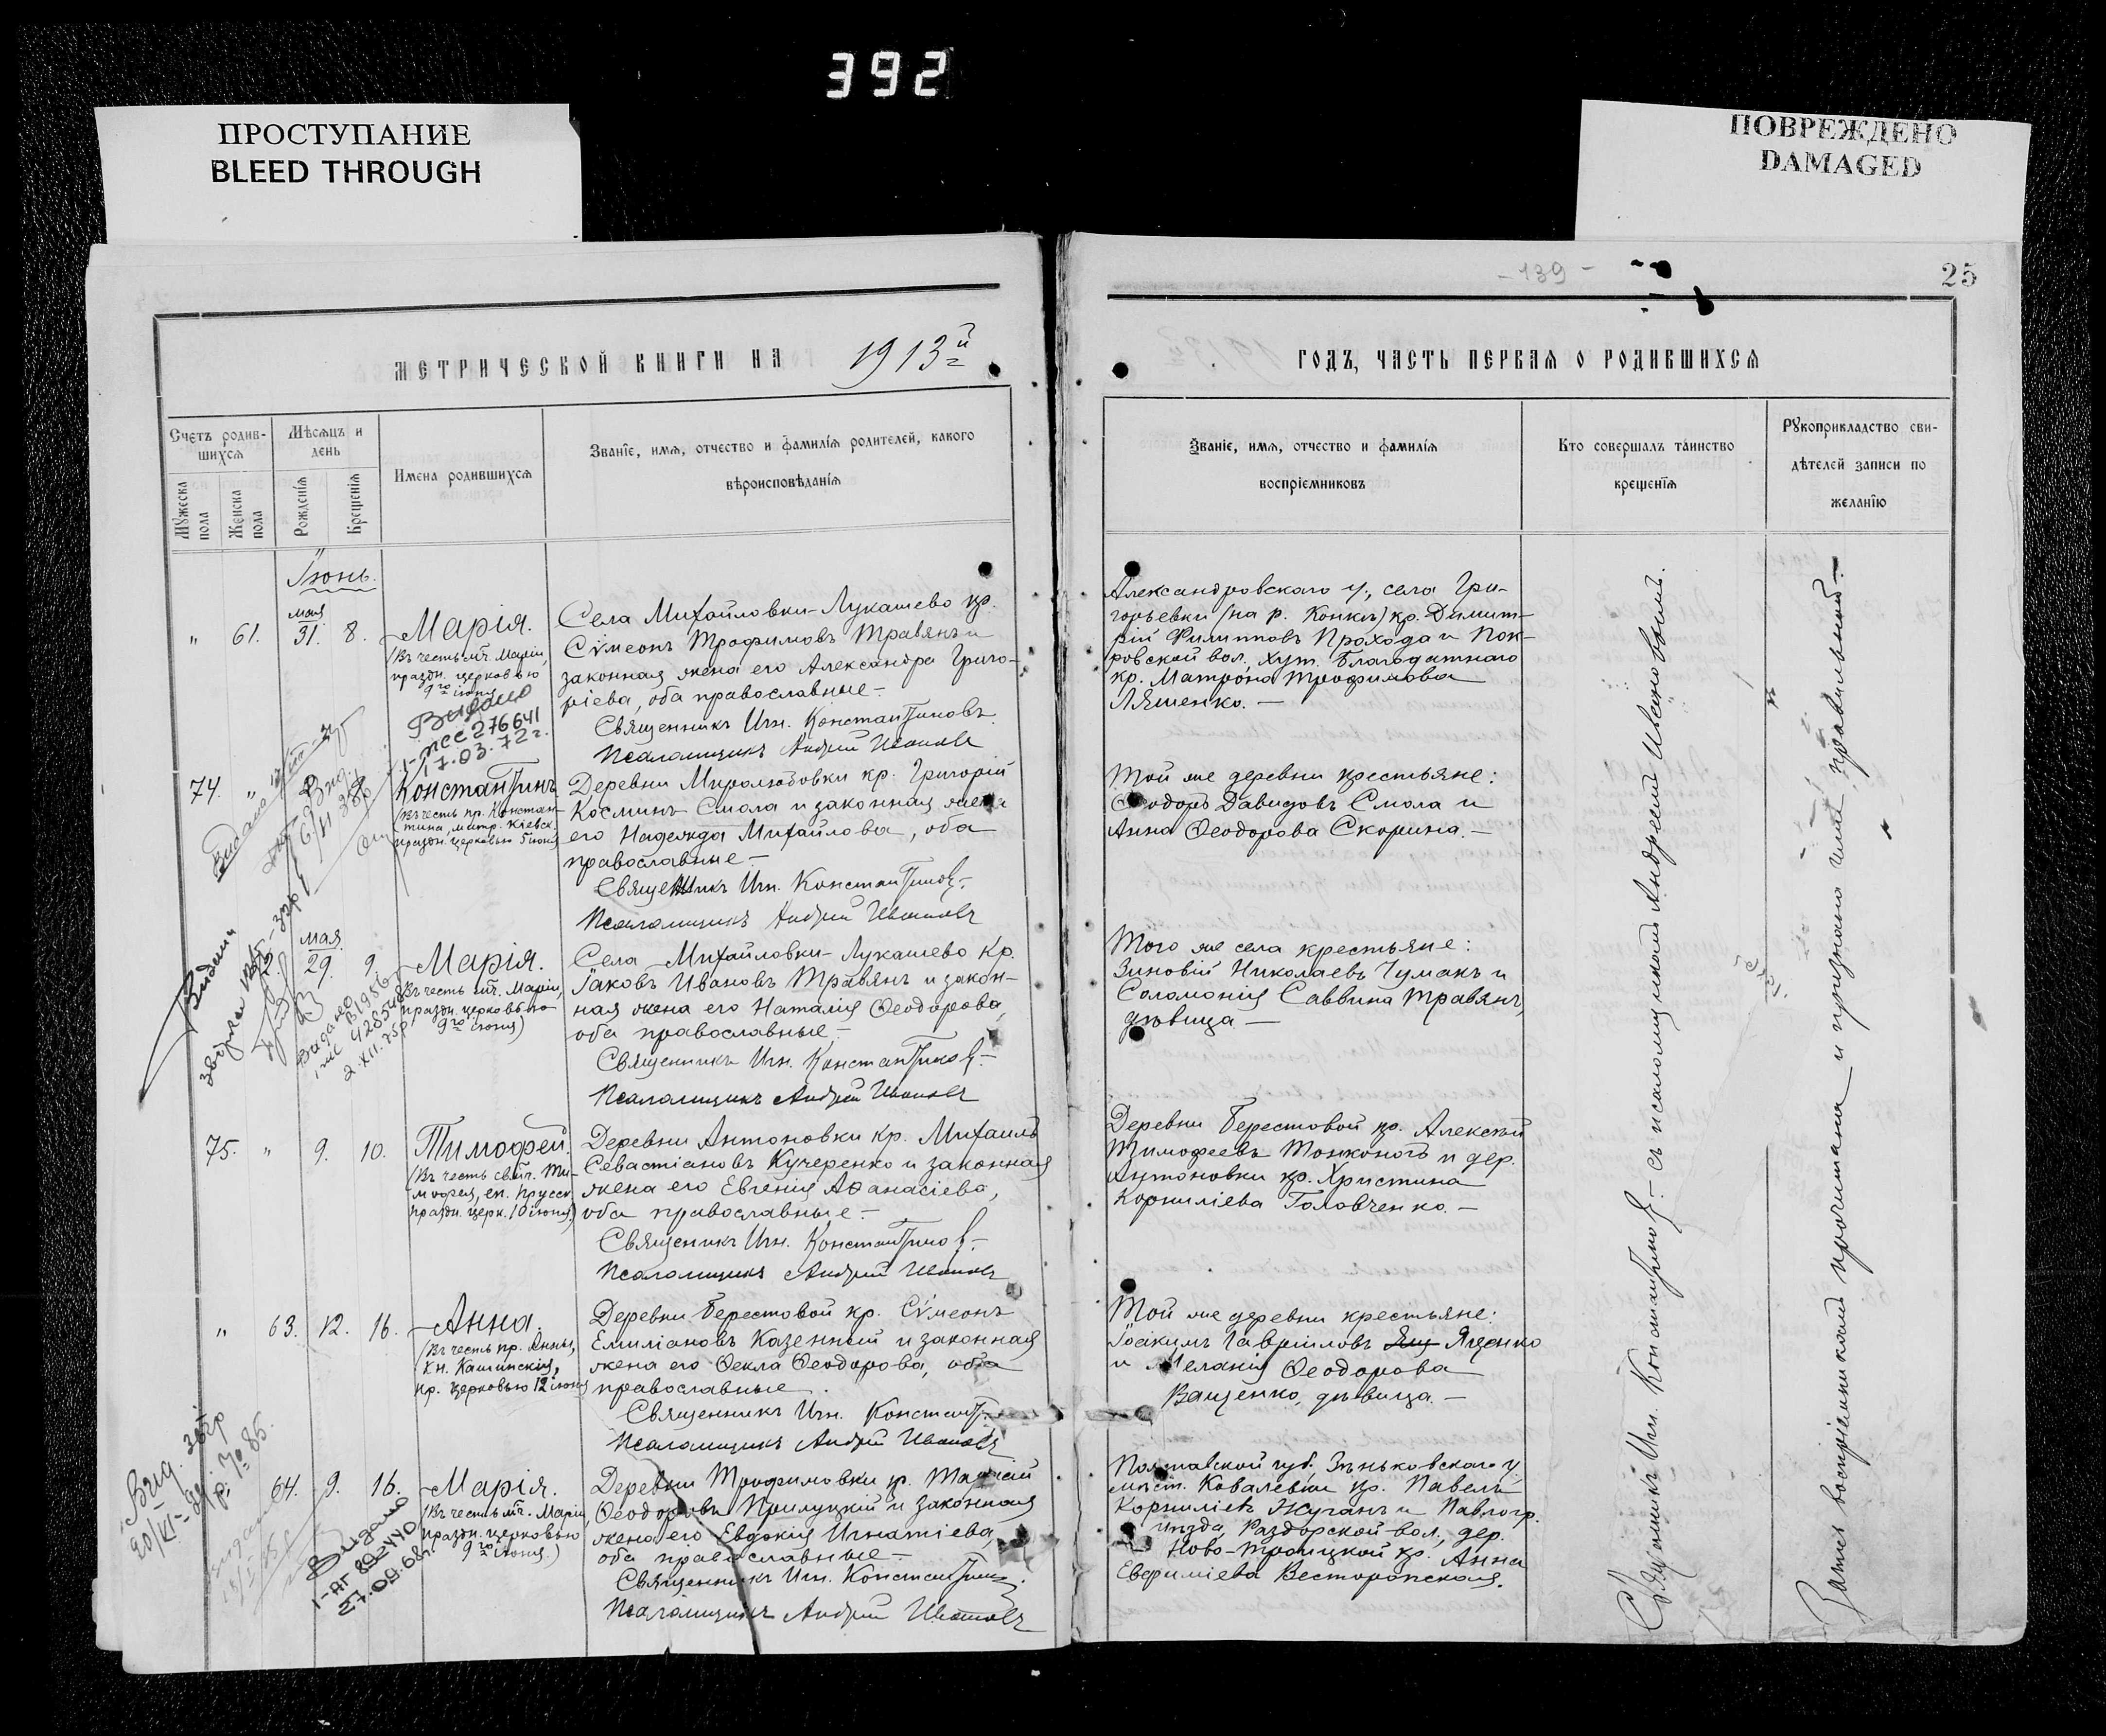 392
ПРОСТУПАНИЕ
BLEED THROUGH
ПОВРЕЖДЕНО
DAMAGED
- 139 -
25
МЕТРИЧЕСКОЙ КНИГИ НА 1913й
ГОДЪ, ЧАСТЬ ПЕРВАЯ О РОДИВШИХСЯ
Счетъ родив-
шихся
Мужеска
пола
Женска
пола
Мѣсяцъ и
день
Рожденія
Крещенія
Имена родившихся
Званіе, имя, отчество и фамилія родителей, какого
вѣроисповѣданія
Званіе, имя, отчество и фамилія
воспріемниковъ
Кто совершалъ таинство
крещенія
Рукоприкладство сви-
дѣтелей записи по
желанію
Іюнь.
" 61. мая 31. 8.
Марія.
(Въ честь мч. Маріи,
праздн. церковью
9го іюня
Видано
I-ЖС 276641
17.03.72г.
Села Михайловки-Лукашево кр.
Сѵмеонъ Трофимовъ Травянъ и
законная жена его Александра Григо-
ріева, оба православные.-
Священникъ Игн. Константиновъ.
Псаломщикъ Андрей Ивановъ
Александровскаго у., села Гри-
горьевки (на р. Конкѣ) кр. Димит-
рій Филипповъ Прохода и Пок-
ровской вол., хут. Благодатнаго
кр. Матрона Трофимова
Ляшенко.-
74. "
Константинъ
(Въ честь пр. Констан-
тина, митр. Кіевск.
праздн. церковью 5 іюня
Деревни Миролюбовки кр. Григорій
Косминъ Смола и законная жена
его Надежда Михайлова, оба
православные.-
Священникъ Игн. Константинов.-
Псаломщикъ Андрей Ивановъ
Той же деревни крестьяне:
Ѳеодоръ Давидовъ Смола и
Анна Ѳеодорова Скорина.-
мая 29. 9
Марія.
Въ честь мч. Маріи,
праздн. церковью
9го іюня)
Видано
2.XII.75р
Села Михайловки-Лукашево кр.
Іаковъ Ивановъ Травянъ и закон-
ная жена его Наталія Ѳеодорова,
оба православные.-
Священникъ Игн. Константинов.-
Псаломщикъ Андрей Ивановъ
Того же села крестьяне:
Зиновій Николаевъ Чумакъ и
Соломонія Саввина Травянъ,
дѣвица-
75. " 9. 10.
Тимофей.
(Въ честь свщ. Ти-
мофея, еп. Прусск.
праздн. церк. 10 іюня)
Деревни Антоновки кр. Михаилъ
Севастіановъ Кучеренко и законная
жена его Евгенія Аѳанасіева,
оба православные.-
Священникъ Игн. Константинов.-
Псаломщикъ Андрей Ивановъ
Деревни Берестовой кр. Алексѣй
Тимофеевъ Тонконогъ и дер.
Антоновки кр. Христина
Корниліева Головченко.-
" 63. 12. 16.
Анна.
(Въ честь пр. Анны,
кн. Кашинскія,
пр. церковью 12 іюня
Деревни Берестовой кр. Сѵмеонъ
Емиліановъ Казенный и законная
жена его Ѳекла Ѳеодорова, оба
православные.
Священникъ Игн. Констант
Псаломщикъ Андрей Ивановъ
Той же деревни крестьяне:
Іоакимъ Гавріиловъ Ященко
и Меланія Ѳеодорова
Ващенко, дѣвица.-
64. 9. 16.
Марія.
(Въ честь мч. Маріи,
праздн. церковью
9го іюня.)
Видано
27.09.68г.
Деревни Трофимовки кр.
Ѳеодоровъ Прилуцкій и законная
жена его Евдокія Игнатіева,
оба православные.-
Священникъ Игн. Константинов.
Псаломщикъ Андрей Ивановъ
Полтавской губ. Зѣньковскаго у.
мѣст. Ковалевки кр. Павелъ
Корниліевъ Жуганъ и Павлогр.
уѣзда, Раздорской вол., дер.
Ново-Троицкой кр. Анна
Евфиміева Весторопская.
Священникъ Игн. Константинов.- съ псаломщикомъ Андреемъ Ивановымъ.
Запись воспріемниками прочитана и признана ими правильной.-